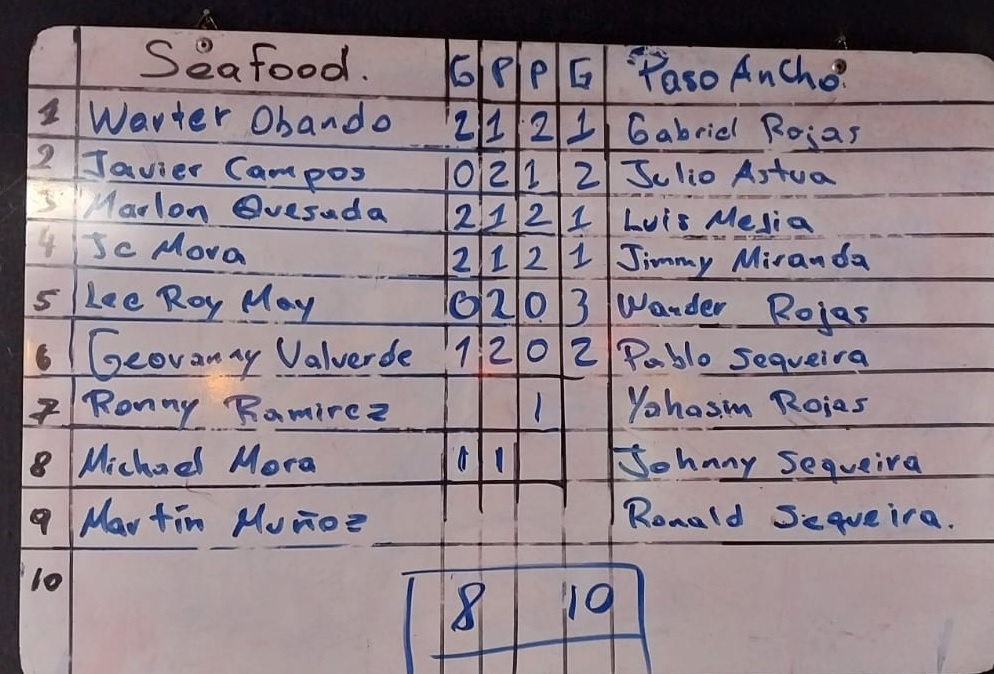 Seafood. G P P G Paso Ancho.
1 Warter Obando 2 1 2 1 Gabriel Rojas
2 Javier Campos 0 2 1 2 Julio Astua
3 Marlon Quesada 2 1 2 1 Luis Mejia
4 Jc Mora 2 1 2 1 Jimmy Miranda
5 Lee Roy May 0 2 0 3 Wander Rojas
6 Geovanny Valverde 1 2 0 2 Pablo Sequeira
7 Ronny Ramirez 1 Yohasin Rojas
8 Michael Mora 1 1 Johnny Sequeira
9 Martín Muñoz Ronald Sequeira.
10
8 10